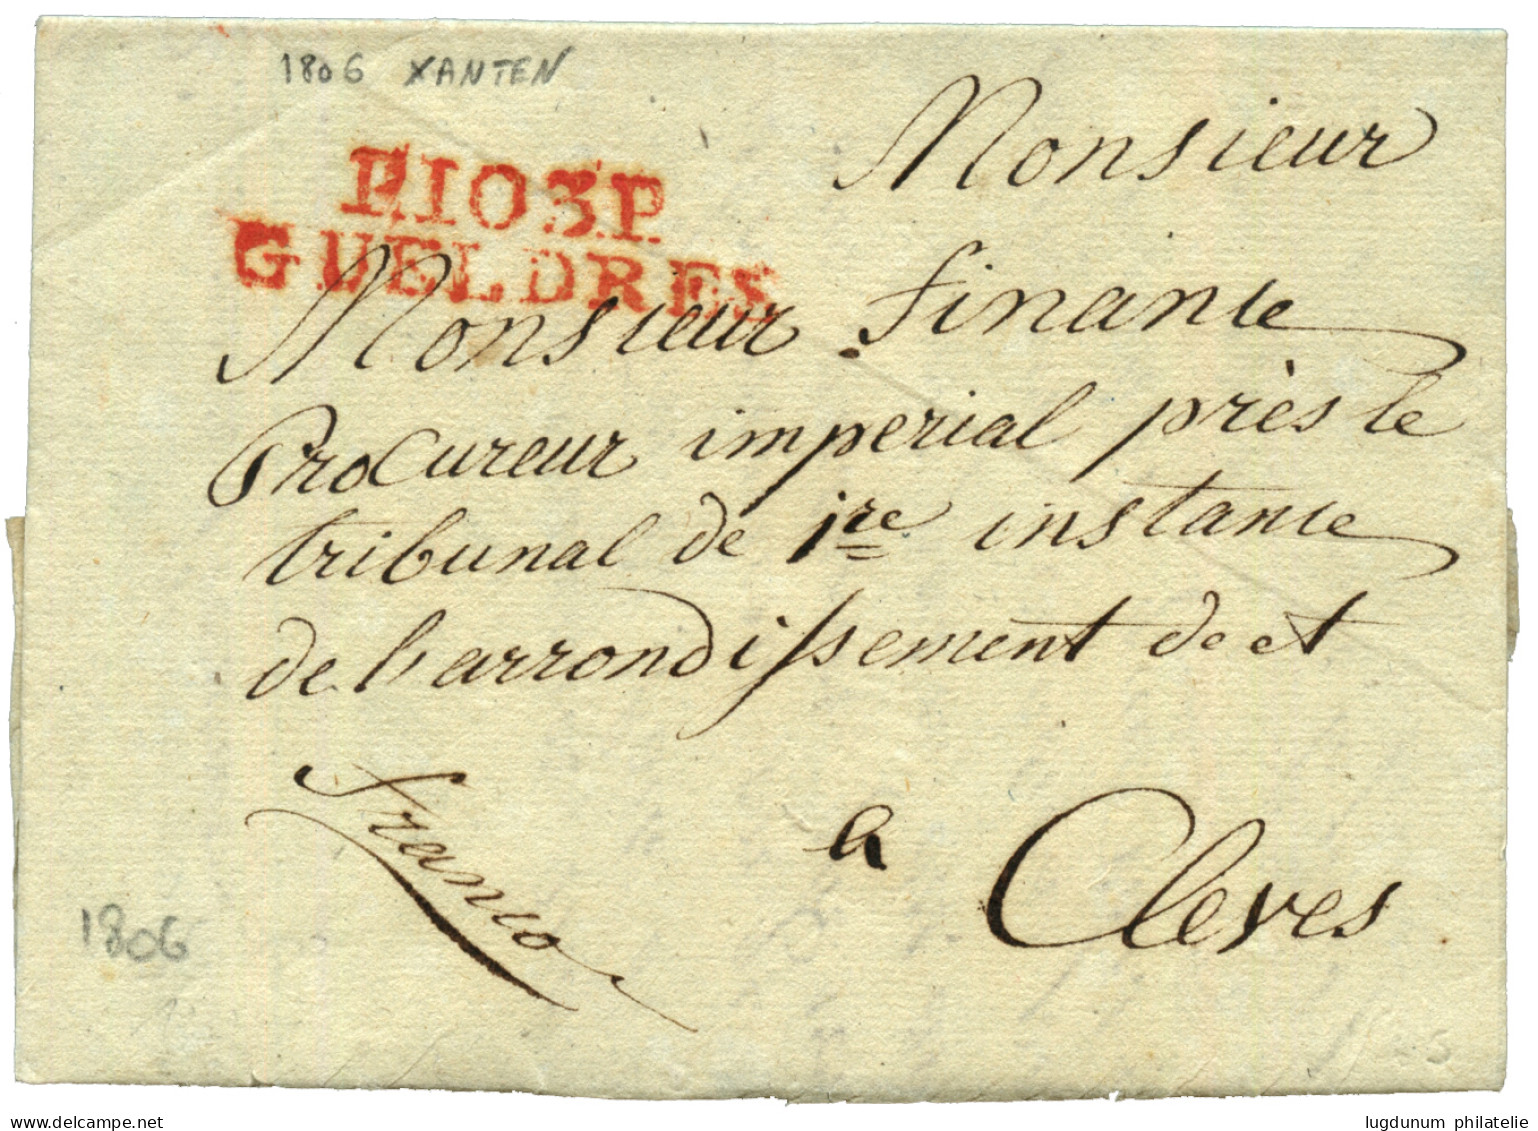 1806 XANTEN
P.103.P.
GUELDRES
Monsieur
Monsieur Finance
Procureur imperial près le
tribunal de 1re instance
de l'arrondissement de et
a Cleves
franco
1806
lugdunum philatelie